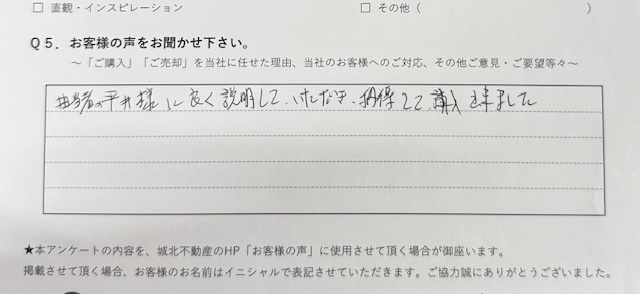 □ 直観・インスピレーション □ その他（ ）
Q5．お客様の声をお聞かせ下さい。
～「ご購入」「ご売却」を当社に任せた理由、当社のお客様へのご対応、その他ご意見・ご要望等々～
担当者の平井様に良く説明していただき、納得して購入出来ました
★本アンケートの内容を、城北不動産のHP「お客様の声」に使用させて頂く場合が御座います。
掲載させて頂く場合、お客様のお名前はイニシャルで表記させていただきます。ご協力誠にありがとうございました。